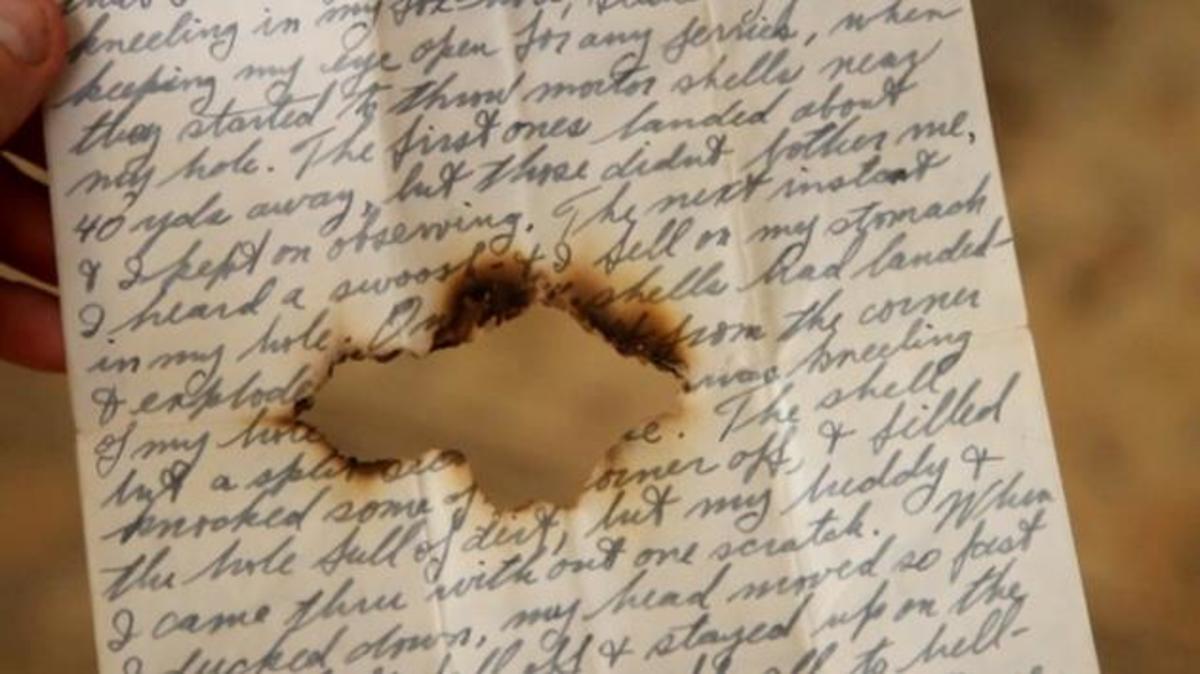 kneeling in my fox-hole,
keeping my eye open for any Jerries, when
they started to throw mortor shells near
my hole. The first ones landed about
40 yds away, but those didnt bother me,
& I kept on observing. The next instant
I heard a swoosh & I fell on my stomach
in my hole. On shells had landed
& explode from the corner
of my hole was kneeling
but a split sec e. The shell
knocked some of orner off, & filled
the hole full of dirt, but my buddy &
I came thru with out one scratch. When
I ducked down, my head moved so fast
off & stayed up on the
all to hell-